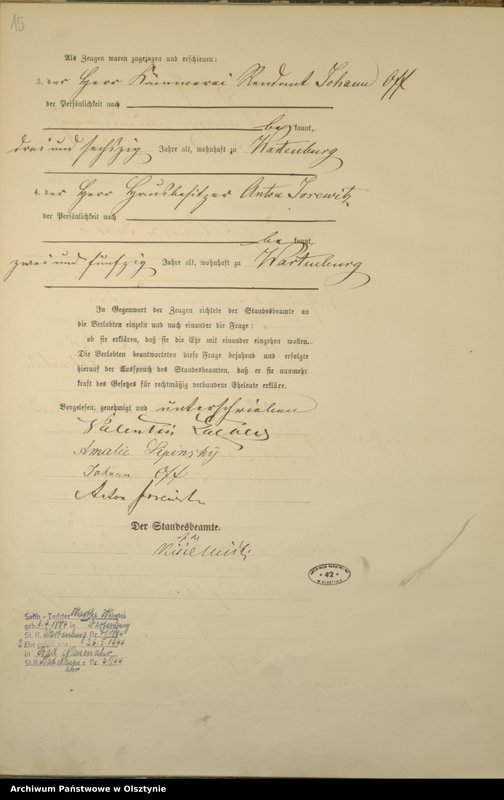 15
Als Zeugen waren zugezogen und erschienen:
3. der Herr Kämmerei Rendant Johann Off
der Persönlichkeit nach
be kannt,
drei und sechszig Jahre alt, wohnhaft zu Wartenburg
4. der Herr Hausbesitzer Anton Sorewitz
der Persönlichkeit nach
be kannt,
zwei und fünfzig Jahre alt, wohnhaft zu Wartenburg
In Gegenwart der Zeugen richtete der Standesbeamte an
die Verlobten einzeln und nach einander die Frage:
ob sie erklären, daß sie die Ehe mit einander eingehen wollen.
Die Verlobten beantworteten diese Frage bejahend und erfolgte
hierauf der Ausspruch des Standesbeamten, daß er sie nunmehr
kraft des Gesetzes für rechtmäßig verbundene Eheleute erkläre.
Vorgelesen, genehmigt und unterschrieben
Valentin
Amalie Lipinsky
Johann Off
Anton
Der Standesbeamte.
ARCHIWUM PAŃSTWOWE
* 42 *
W OLSZTYNIE
Tochter Martha
geb. in Wartenburg
St. A. Wartenburg Nr.
in Bad Neuenahr
St.A. Nr.
Archiwum Państwowe w Olsztynie